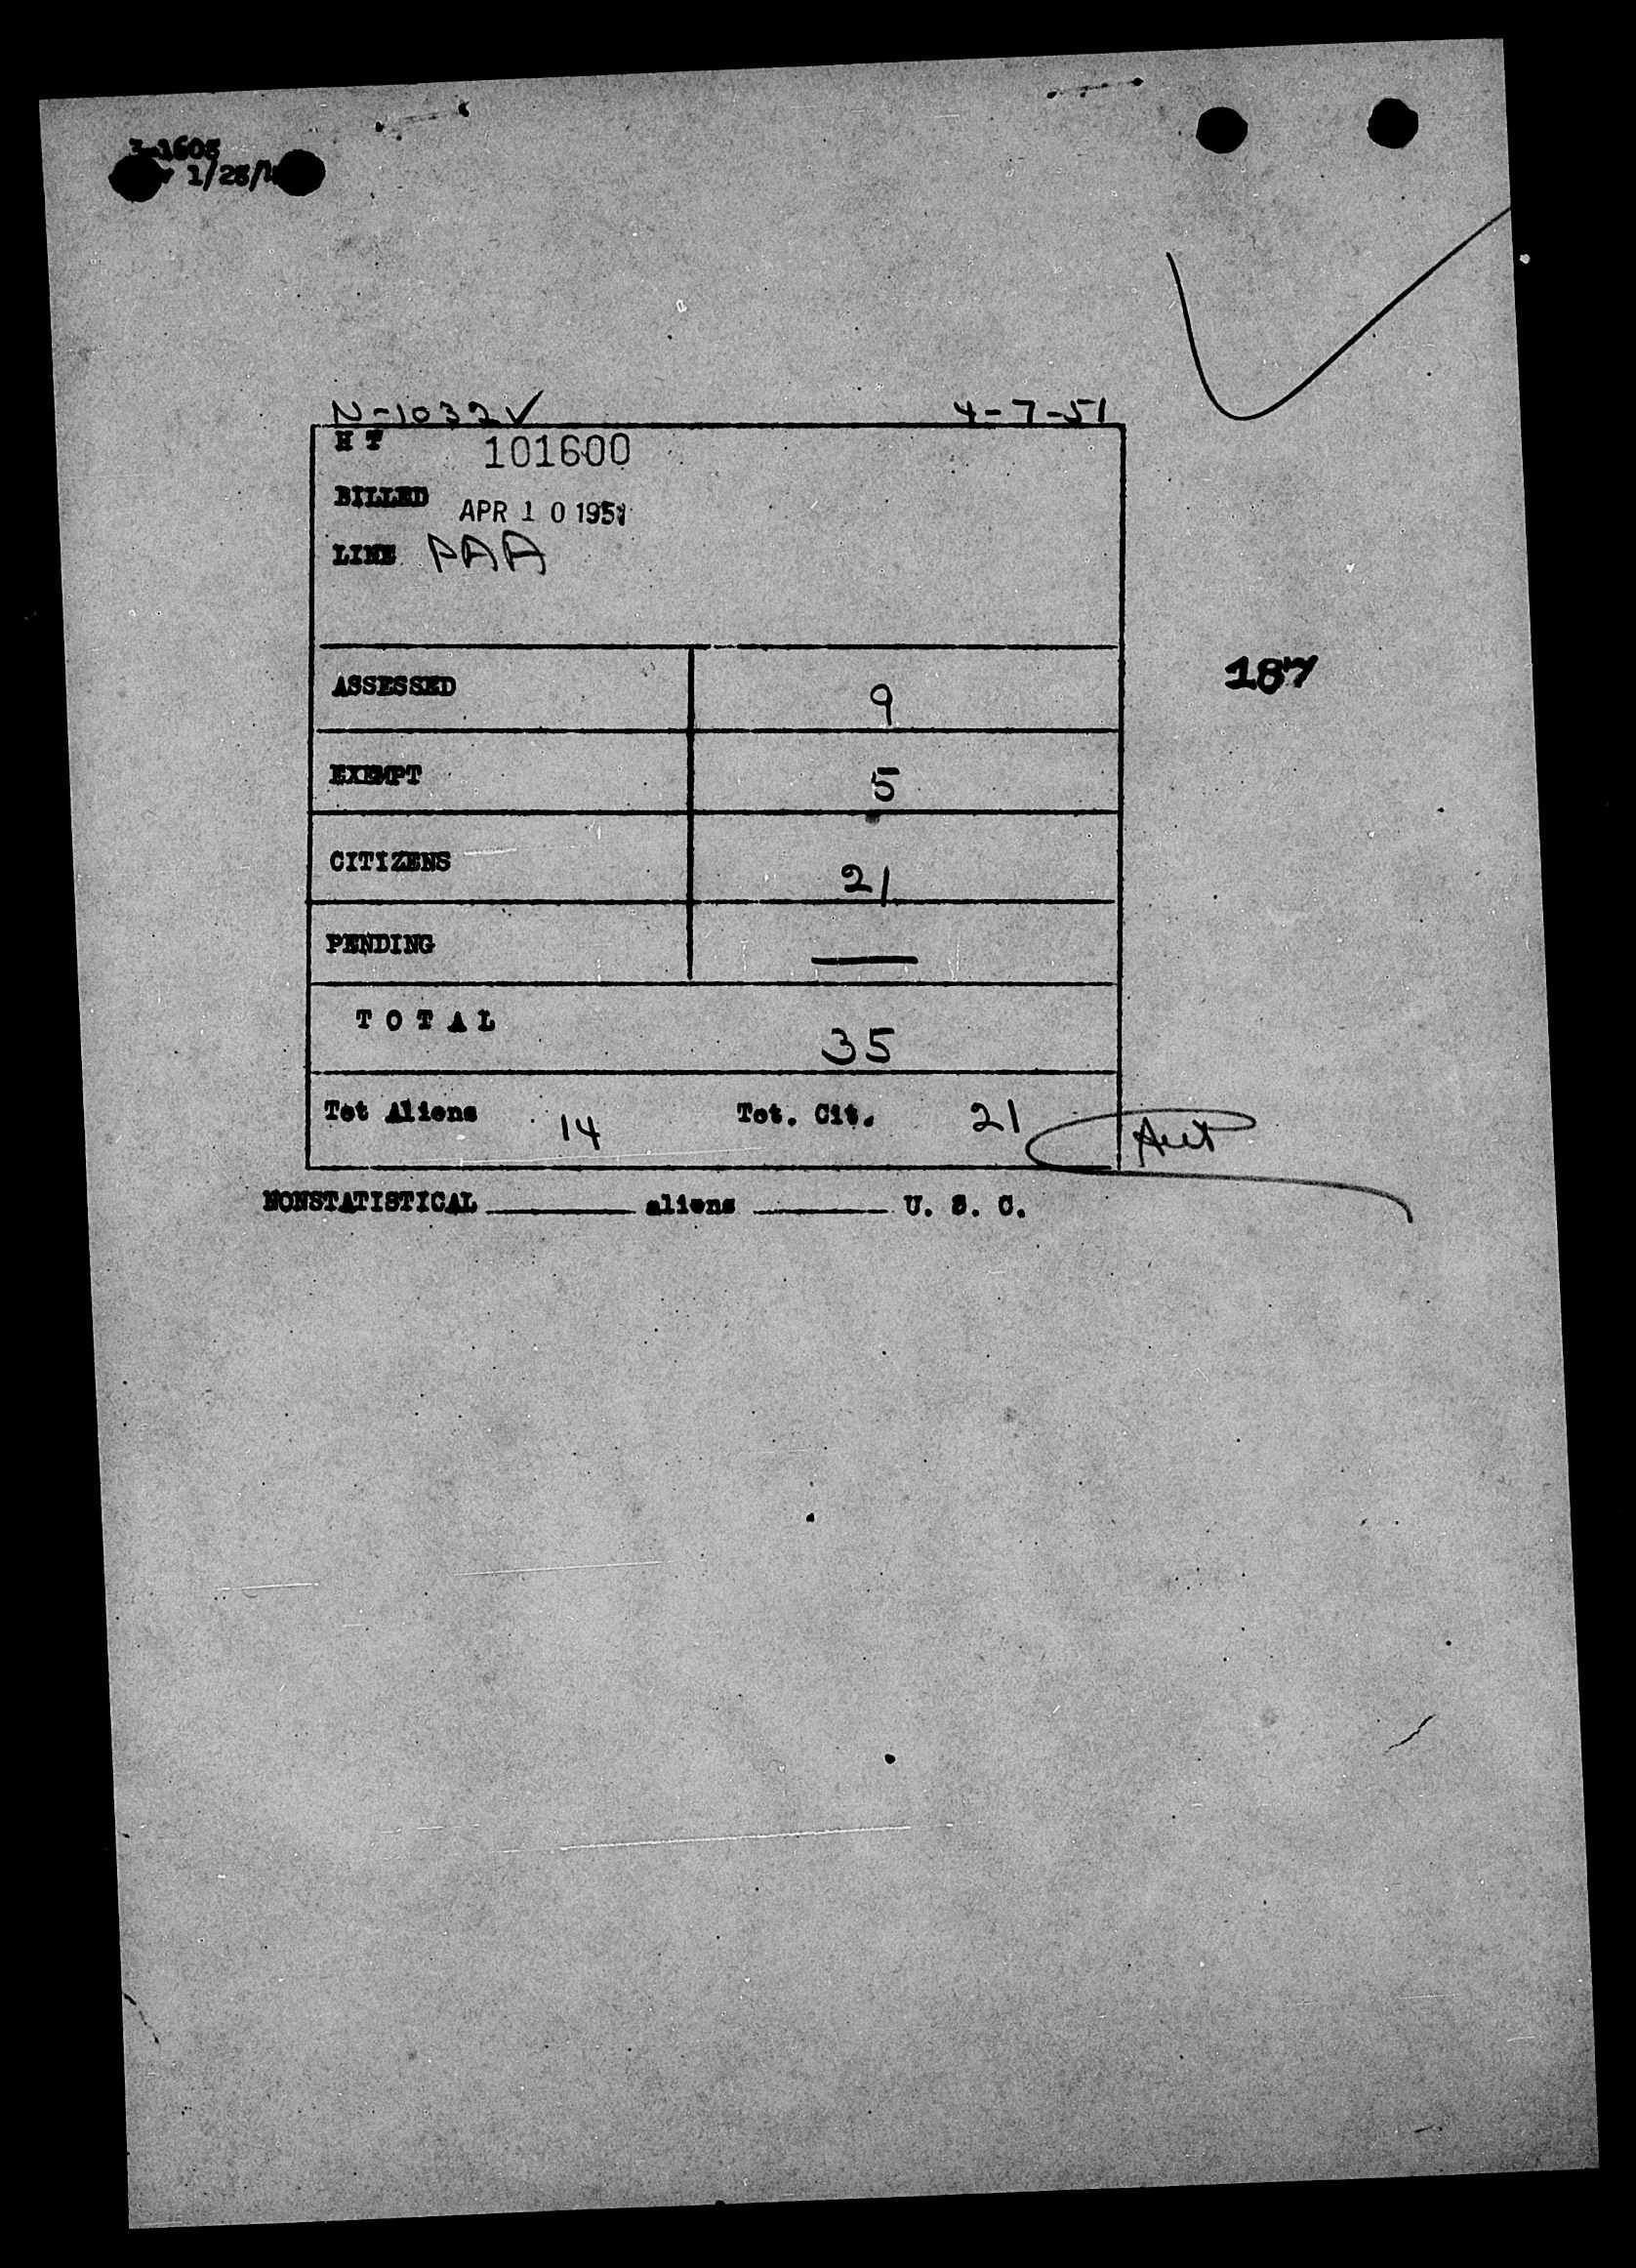 3-1603
1/25/
N-1032V 4-7-51
H T 101600
BILLED APR 10 1951
LINE PAA
ASSESSED 9
187
EXEMPT 5
CITIZENS 21
PENDING —
TOTAL 35
Tot Aliens 14 Tot. Cit. 21
NONSTATISTICAL ______ aliens ______ U. S. C.